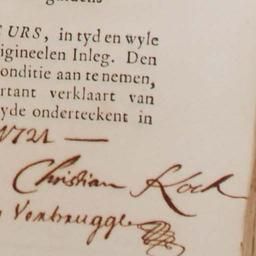 EURS, in tyd en wyle
igineelen Inleg. Den
onditie aan te nemen,
rtant verklaart van
yde onderteekent in
1721
Christian Koch
Verbrugge